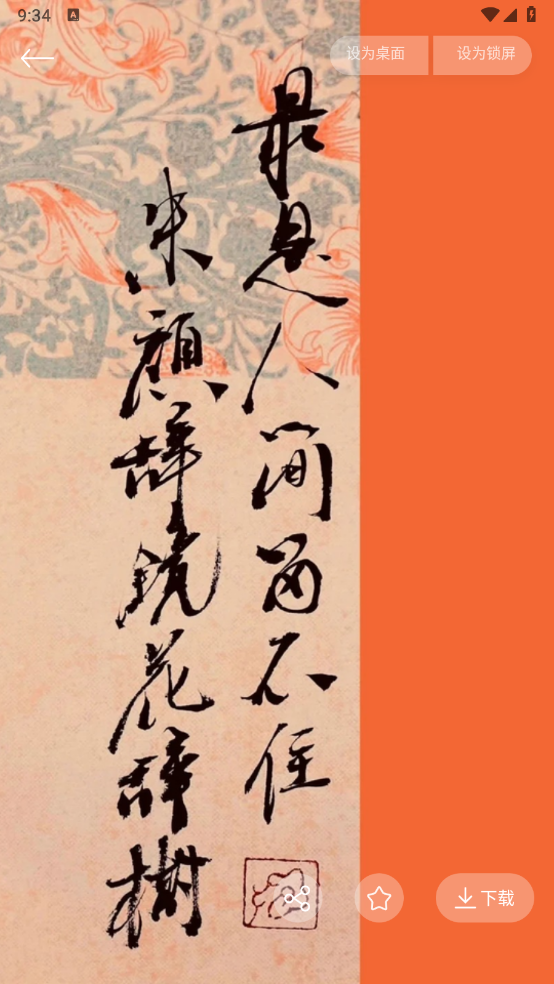 9:34
A
设为桌面
设为锁屏
最是人间留不住
朱顏辞鏡花辞樹
下载